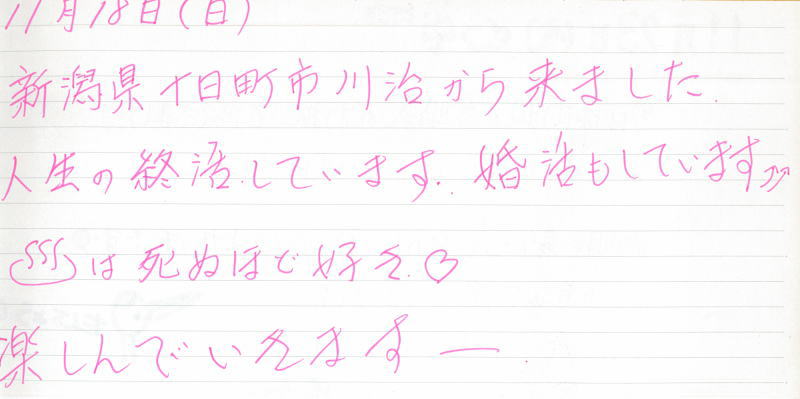 11月18日(日)
新潟県十日町市川治から来ました.
人生の終活.しています.. 婚活もしています
♨は死ぬほど好き.♡
楽しんでいきます—.